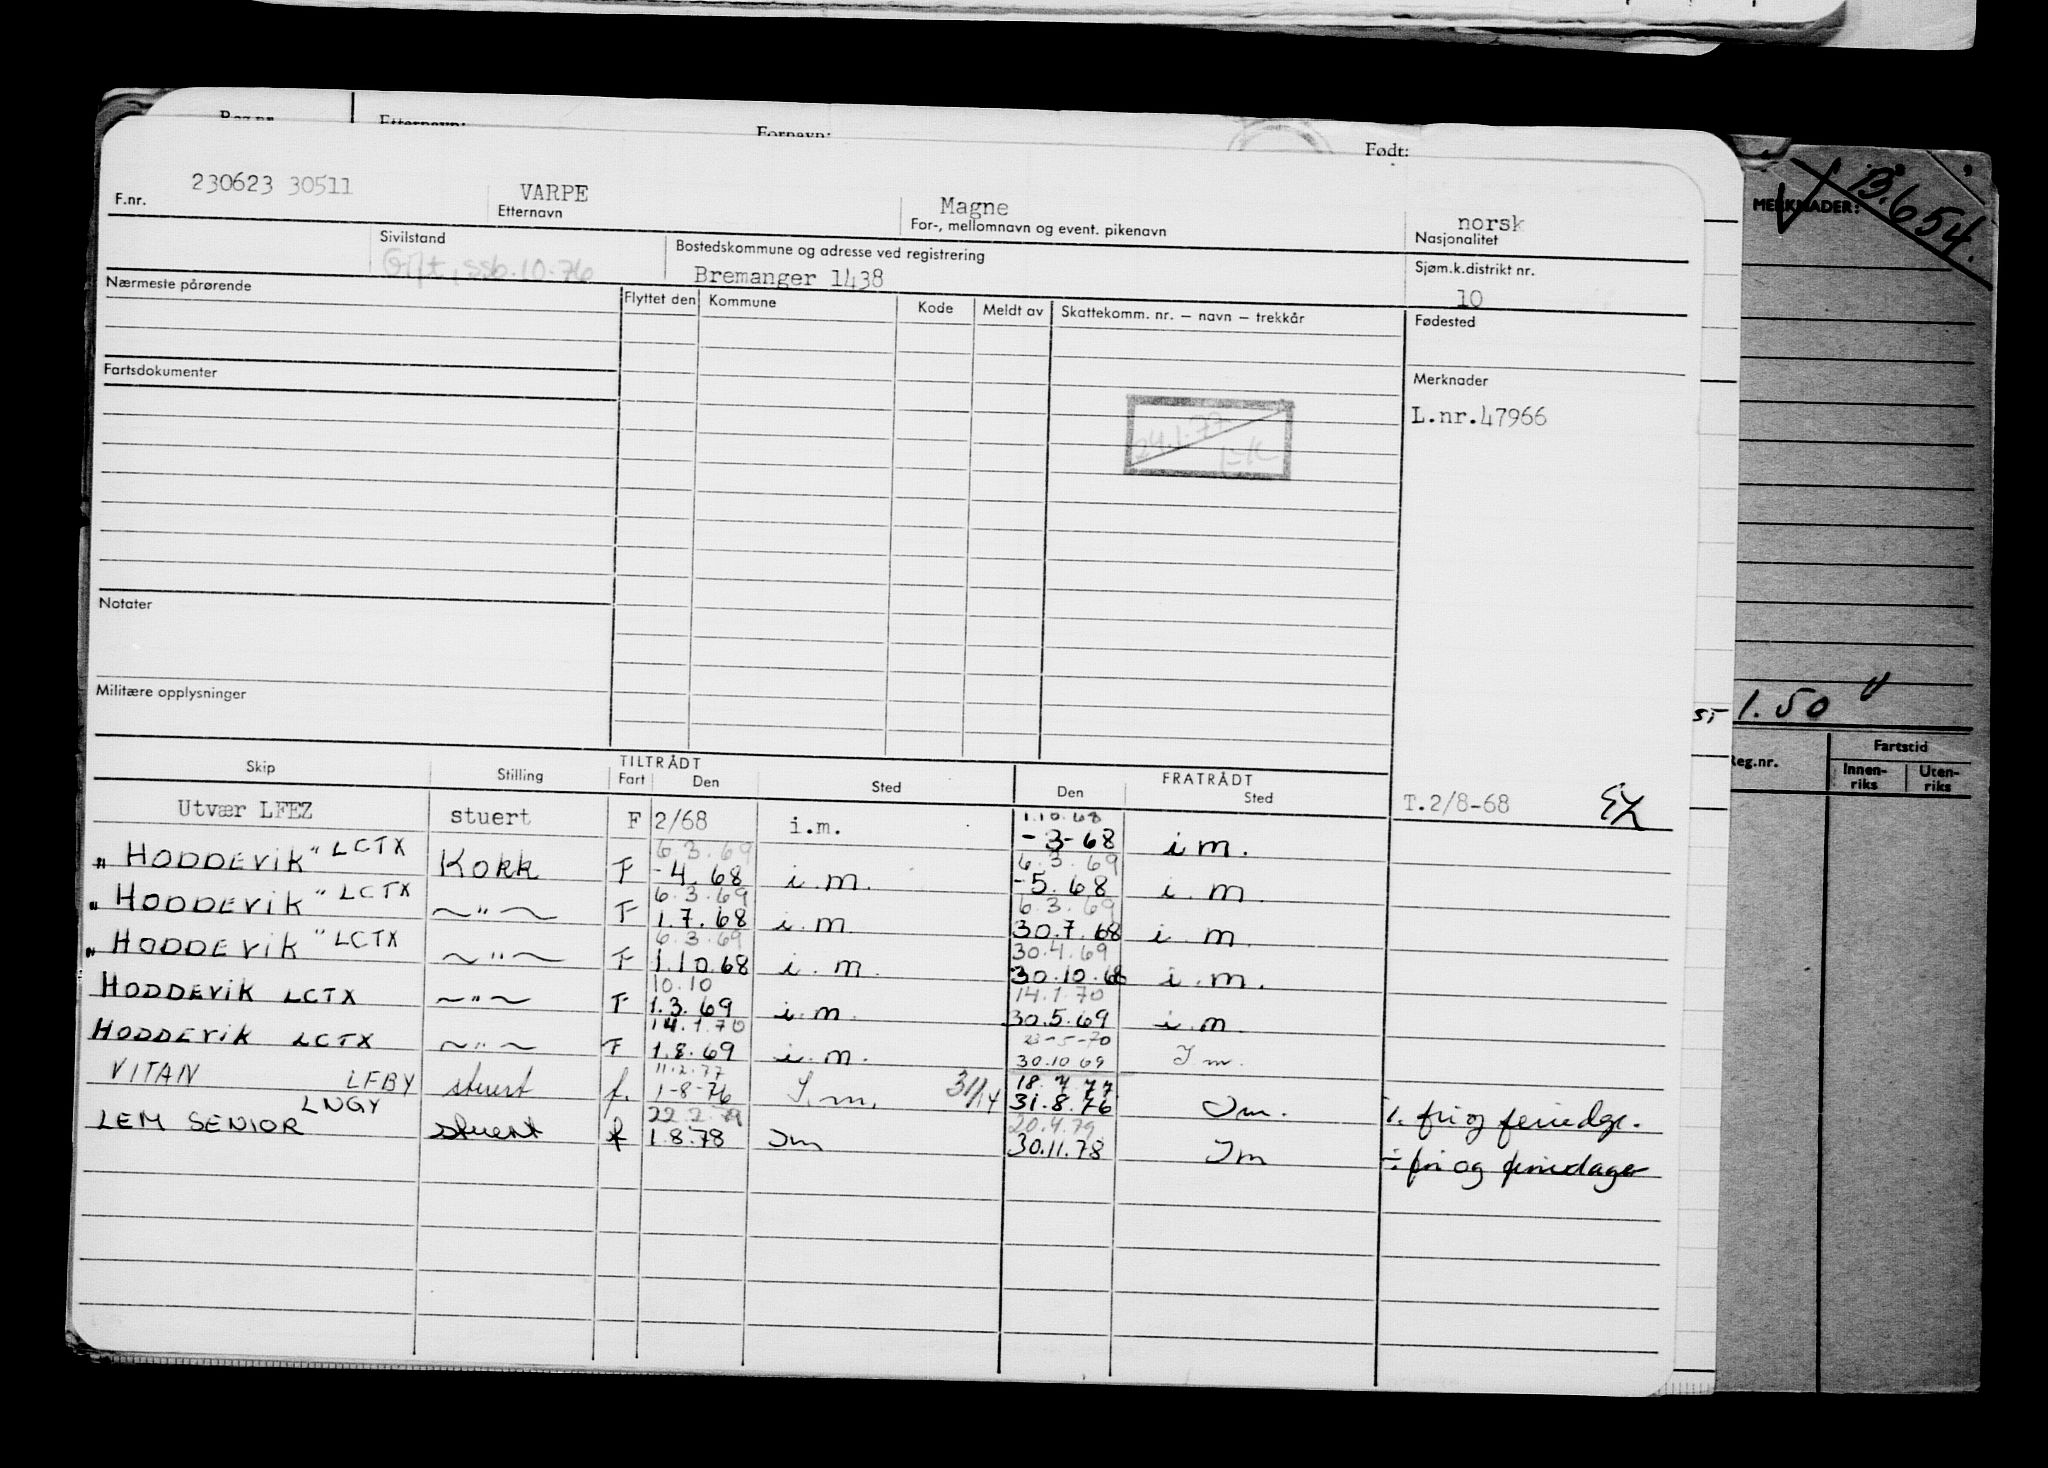 Reg.nr. Etternavn: Fornavn: Født:
F.nr. 230623 30511 VARPE Etternavn Magne For-, mellomnavn og event. pikenavn norsk Nasjonalitet
Sivilstand Gift, ssb.10.76 Bostedskommune og adresse ved registrering Bremanger 1438 Sjøm.k.distrikt nr. 10
Nærmeste pårørende Flyttet den Kommune Kode Meldt av Skattekomm. nr. – navn – trekkår Fødested
Fartsdokumenter Merknader
24.1.77
L.nr.47966
Notater
Militære opplysninger
TILTRÅDT FRATRÅDT
Skip Stilling Fart Den Sted Den Sted
Utvær LFEZ stuert F 2/68 i.m. 1.10.68 -3-68 i m. T.2/8-68
"HODDEVIK" LCTX Kokk F 6.3.69 -4.68 i.m. 6.3.69 -5.68 i m.
"HODDEVIK" LCTX ~"~ F 6.3.69 1.7.68 i.m 6.3.69 30.7.68 i.m.
"HODDEVIK" LCTX ~"~ F 6.3.69 1.10.68 i.m. 30.4.69 30.10.68 i.m.
HODDEVIK LCTX ~"~ F 10.10 1.3.69 i.m. 14.1.70 30.5.69 i.m.
HODDEVIK LCTX ~"~ F 14.1.70 1.8.69 i.m. 23-5-70 30.10 69 I m.
VITAN LFBY stuert f. 11.2.77 1-8-76 I.m. 31/14 18.7.77 31.8.76 Im. ÷ fri og feriedge.
LEM SENIOR LNGY stuert f 22.2.79 1.8.78 Im 20.4.79 30.11.78 Im ÷ fri og feriedager
MERKNADER: B.654.
1.50
Reg.nr. Fartstid
Innen-riks Uten-riks